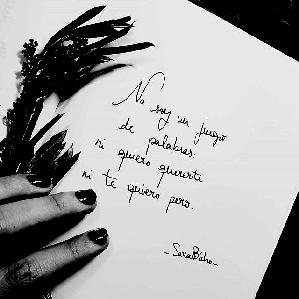 No soy un juego
de palabras.
ni quiero quererte
ni te quiero pero.
- SaraBúho -